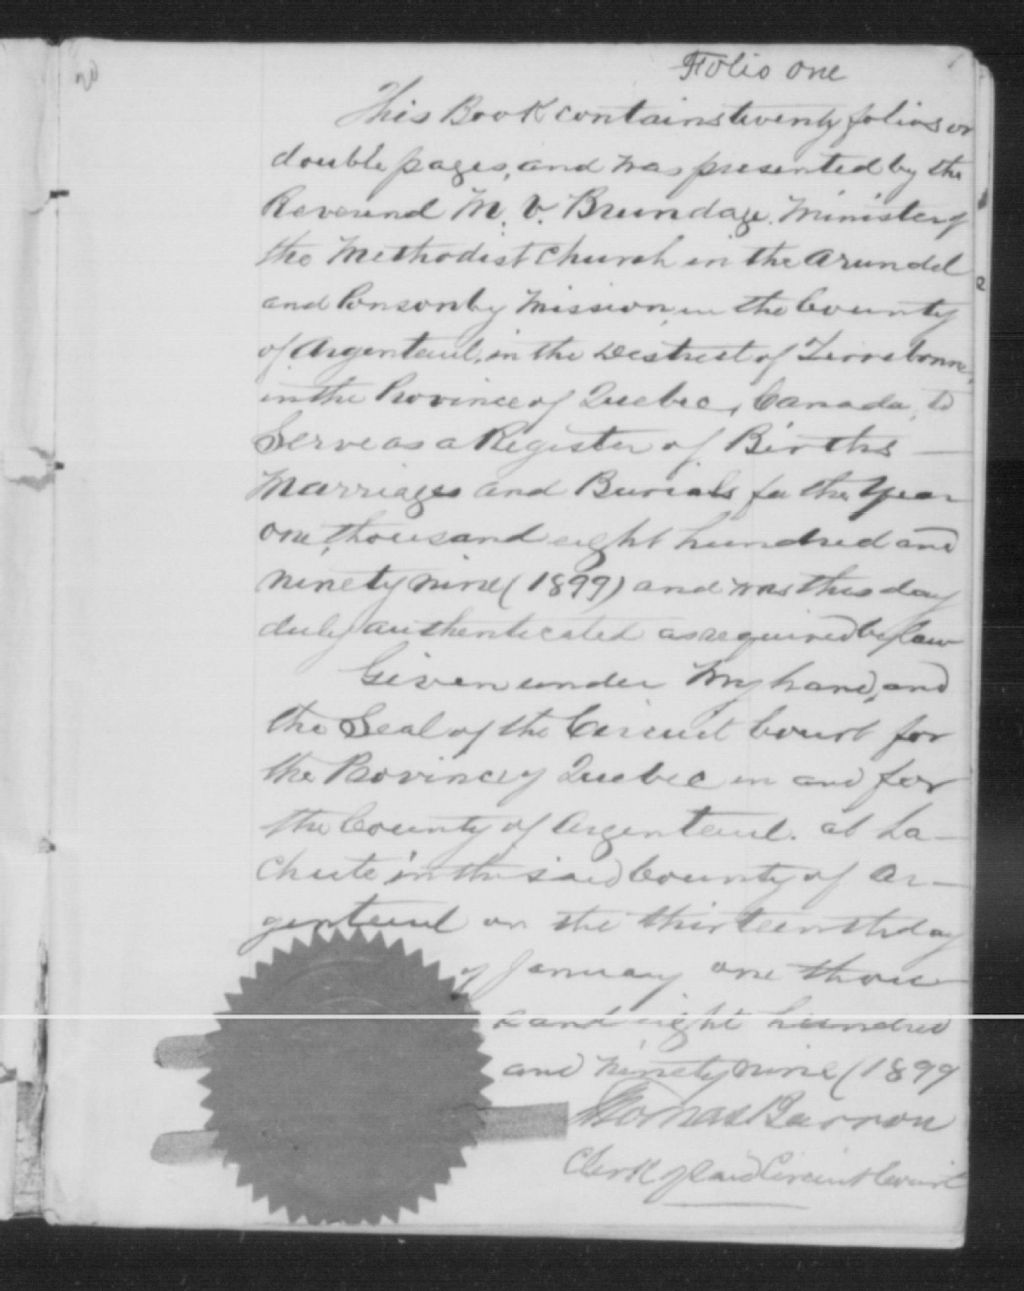 Folio one
This Book contains twenty folios or
double pages, and was presented by the
Reverend M. V. Brundage. Minister of
the Methodist Church in the Arundel
and Ponsonby Mission, in the County
of Argenteuil, in the District of Terrebonne,
in the Province of Quebec, Canada, to
Serve as a Register of Births —
Marriages and Burials for the Year
one, thousand eight hundred and
ninety nine (1899) and was this day
duly authenticated as required by law
Given under my hand, and
the Seal of the Circuit Court for
the Province of Quebec in and for
the County of Argenteuil. at La-
chute in the said County of Ar-
genteuil on the thirteenth day
of January one thou-
sand eight hundred
and ninety nine (1899
Thomas Barron
Clerk of said Circuit Court